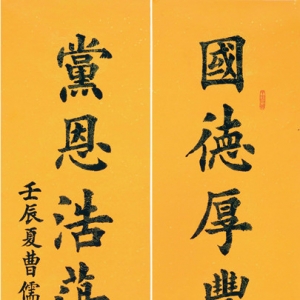 國德厚豐
黨恩浩蕩
壬辰夏曹儒